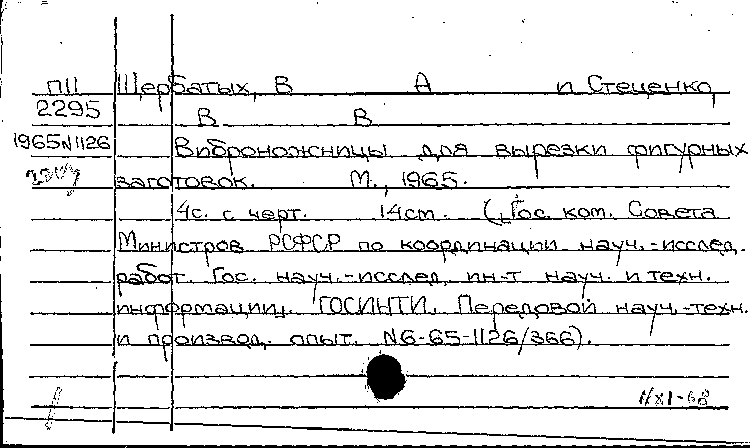 П11 Щербатых, В А и Стеценко,
2295 В В
1965N1126 Виброножницы для вырезки фигурных
заготовок. М., 1965.
4с. с черт. 14см. (Гос. ком. Совета
Министров РСФСР по координации науч.-исслед.
работ. Гос. науч.-исслед. ин-т науч. и техн.
информации. ГОСИНТИ. Передовой науч.-техн.
и производ. опыт. N6-65-1126/366).